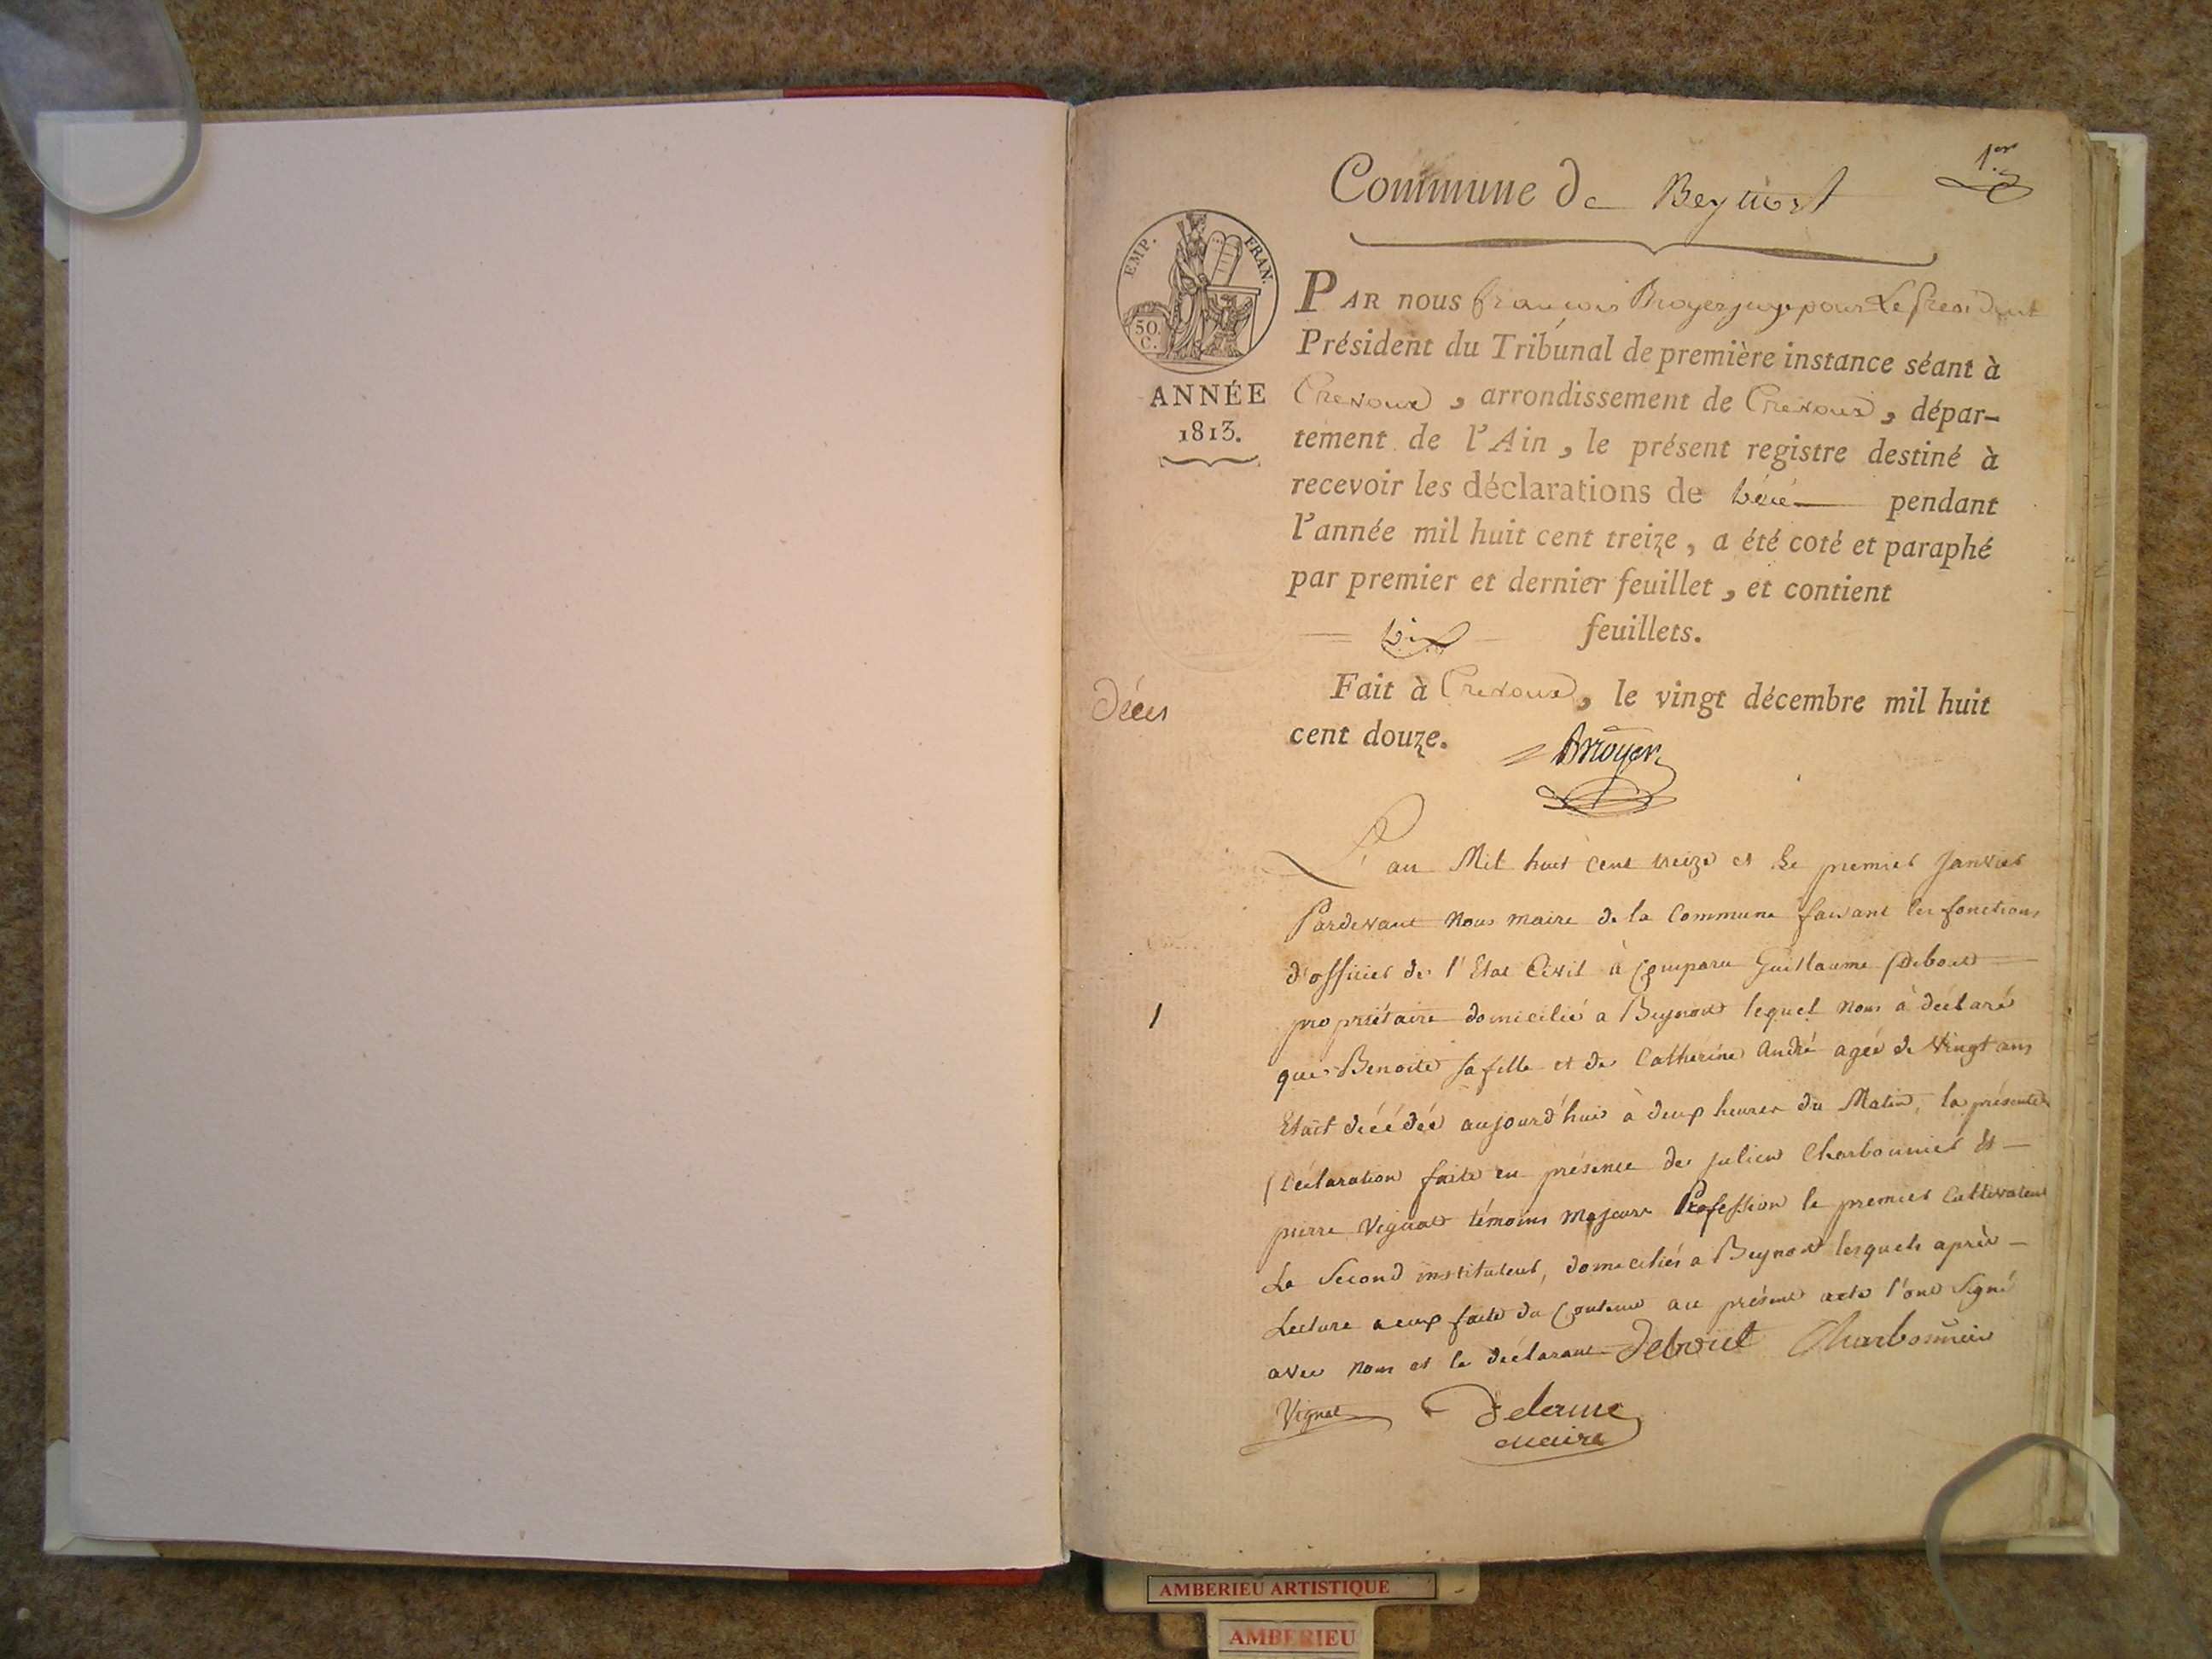 1er
Commune de Beynost
EMP. FRAN.
50.
C.
ANNÉE
1813.
PAR nous françois Broyer juge pour Le president
Président du Tribunal de première instance séant à
Trevoux, arrondissement de Trevoux, dépar-
tement de l'Ain, le présent registre destiné à
recevoir les déclarations de décé pendant
l'année mil huit cent treize, a été coté et paraphé
par premier et dernier feuillet, et contient
dix feuillets.
Fait à Trevoux, le vingt décembre mil huit
cent douze.
Broyer
Décès
L'an Mil huit cent treize et le premier janvier
Pardevant Nous maire de la Commune faisant les fonctions
d'officier de l'Etat Civil à Comparu Guillaume Debout
1
propriétaire domicilié a Beynost lequel nous à déclaré
que Benoite sa fille et de Catherine André agée de vingt ans
Etait décédée aujourd'hui à deux heures du Matin, la présente
Déclaration faite en présence de julien Charbonnier et
pierre Vignat témoins majeurs Profession le premier Cultivateur
Le Second instituteur, domiciliés a Beynost lesquels après
Lecture a eux faite du Contenu au présent acte l'ont Signé
avec nous et le déclarant Debout Charbonnier
Vignat Delerue
maire
AMBERIEU ARTISTIQUE
AMBERIEU